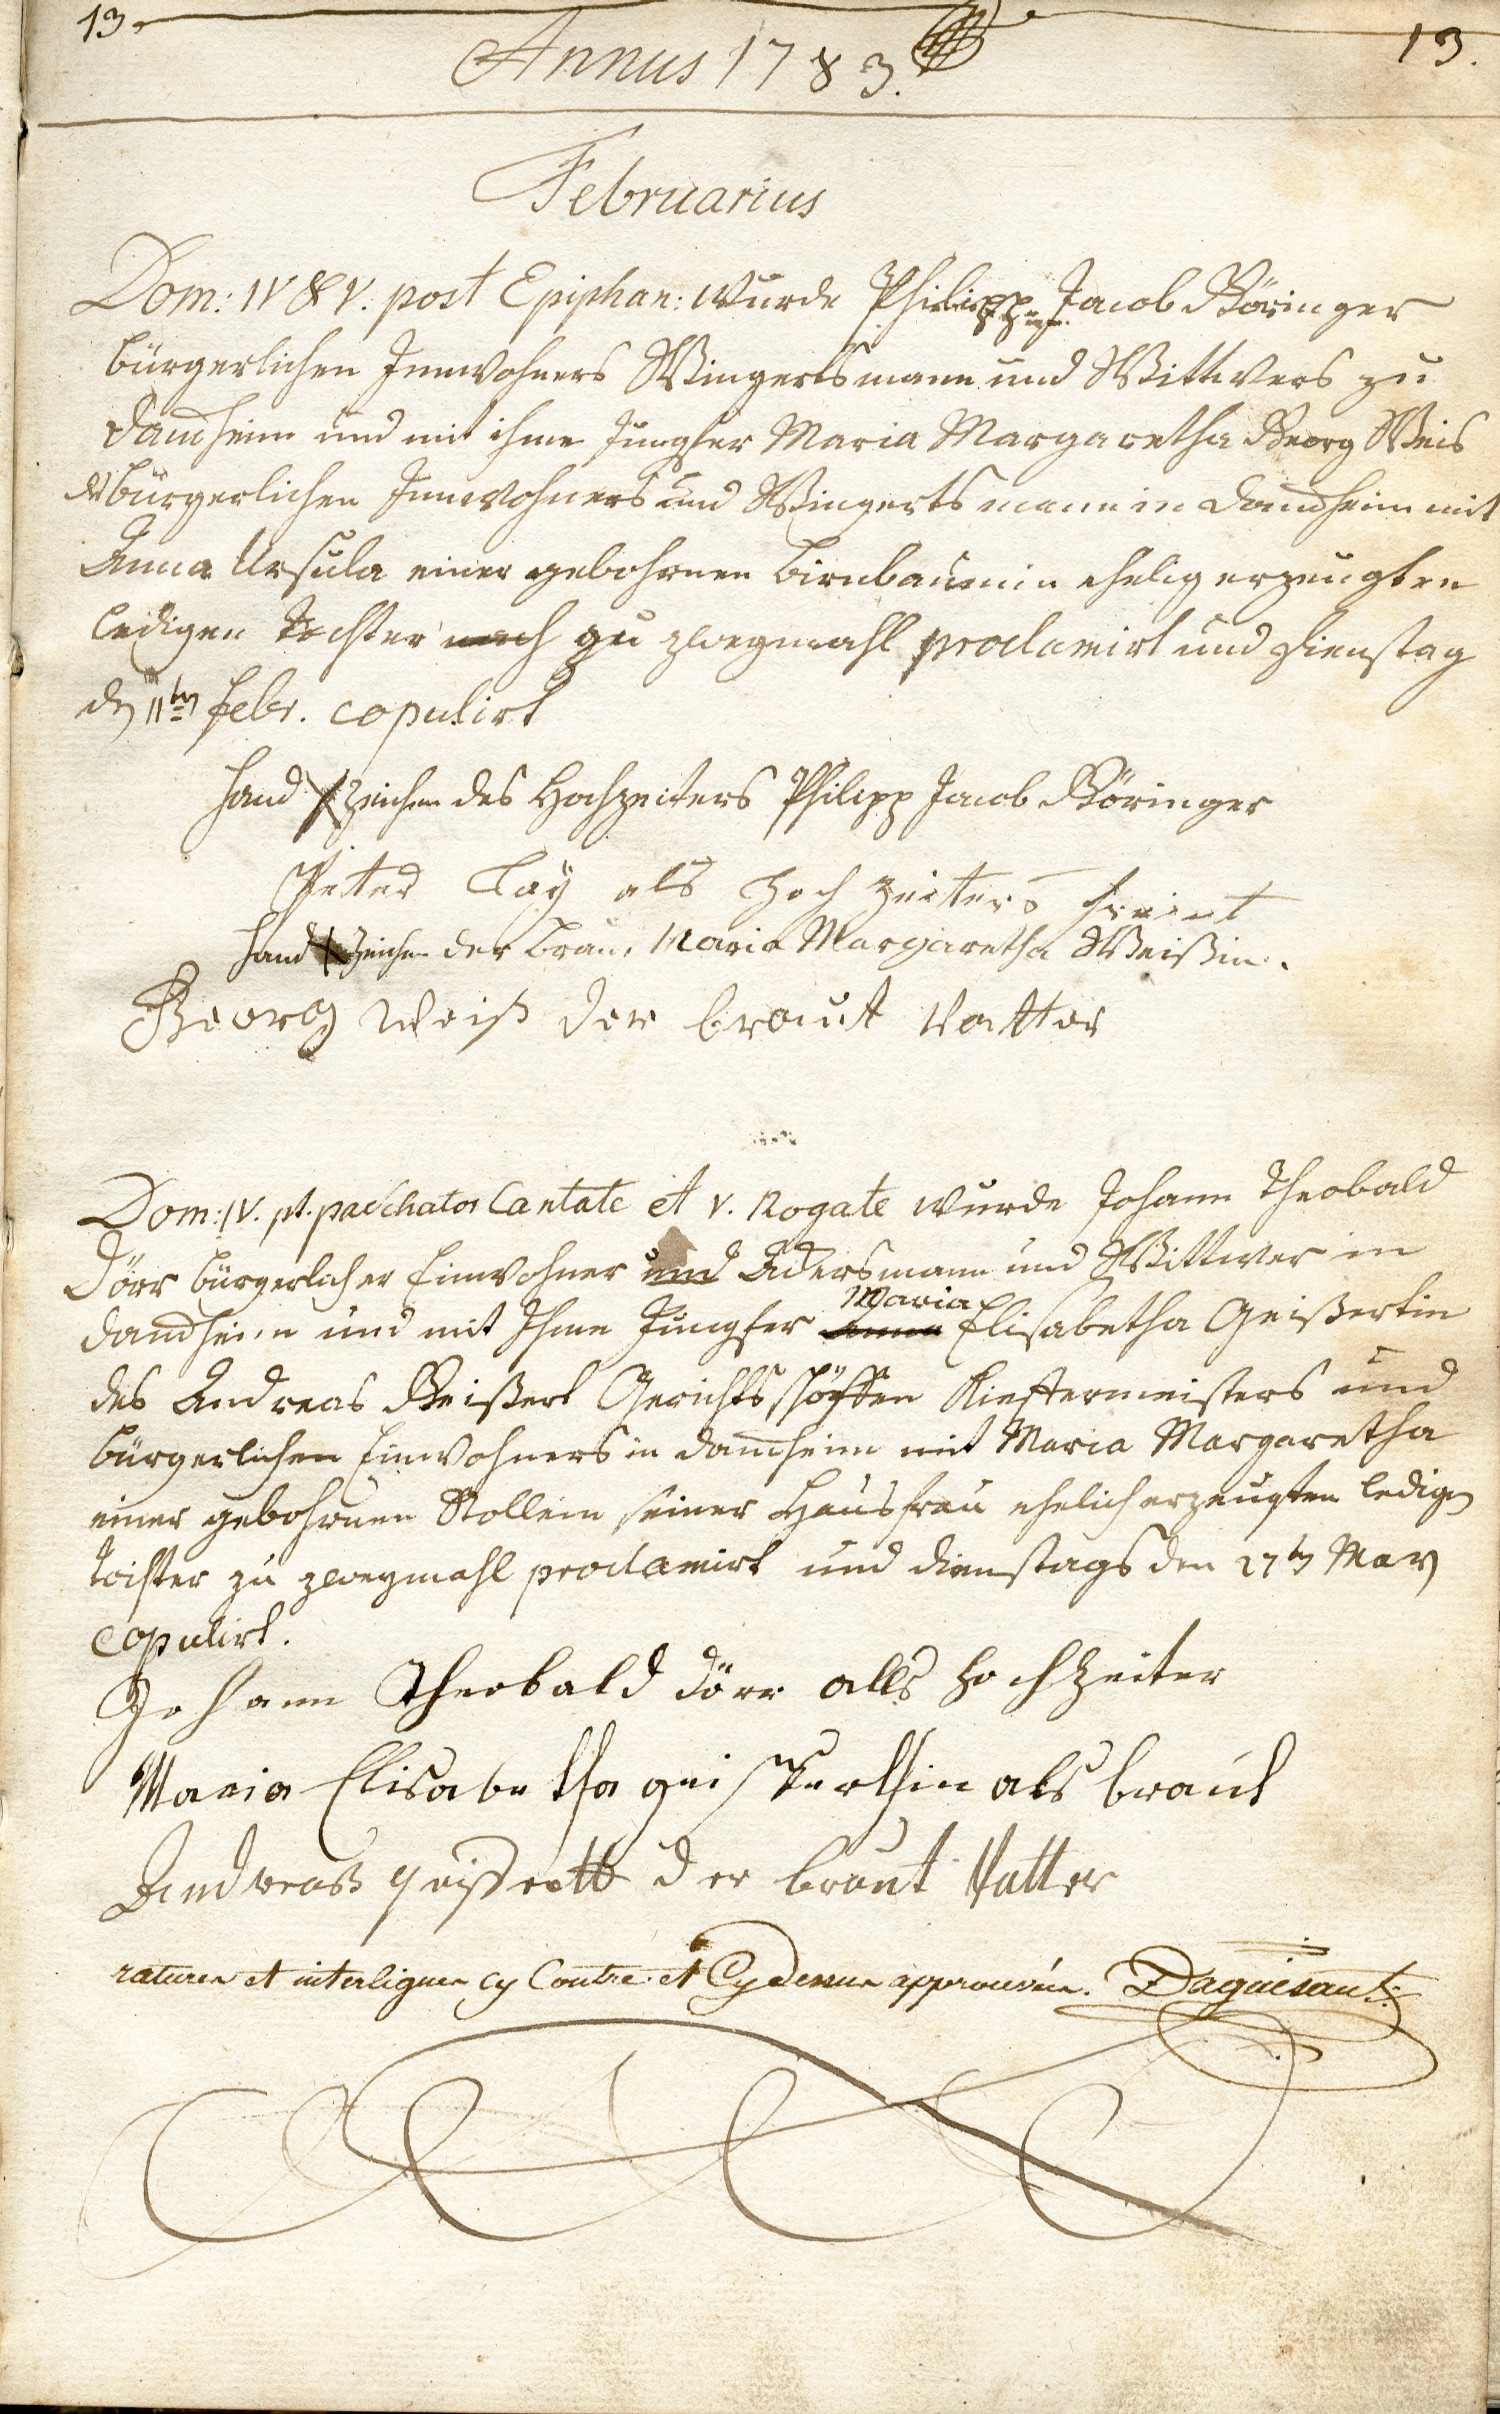 13. 13.
Annus 1783.
Februarius
Dom: IV & V. post Epiphan: wurde Philipp Jacob Böringer
bürgerlichen Innwohners Wingertsmann und Wittwers zu
Damheim und mit ihme Jungfer Maria Margaretha Georg Weis
des bürgerlichen Innwohners und Wingertsmann in Damheim mit
Anna Ursula einer gebohrnen Birnbaumin ehelig erzeugten
ledigen Tochter zu zweymahl proclamirt und Dienstag
den 11ten Febr. copulirt
Hand zeichen des Hochzeiters Philipp Jacob Böringer
Peter Lay als Hoch zeiters freint
Hand zeichen der Braut Maria Margaretha Weißin.
Georg Weiß der braut Vatter
Dom: IV. pt. paschatos Cantate et V. Rogate wurde Johann Theobald
Dörr bürgerlicher Einwohner und Ackersmann und Wittwer in
Damheim und mit Ihme Jungfer Maria Elisabetha Geißertin
des Andreas Geißert Gerichtsschöffen Kieffermeisters und
bürgerlichen Einwohners in Damheim mit Maria Margaretha
einer gebohrnen Stollein seiner Hausfrau ehelich erzeugten ledigen
Tochter zu zweymahl proclamirt und Dienstags den 27ten May
copulirt.
Johann Theobald Dörr alls Hochzeiter
Maria Elisabetha geisserthin als braut
Andreas geissertt der braut Vatter
ratures et interlignes cy Contre et Cydessus approuvées. Daguesant.